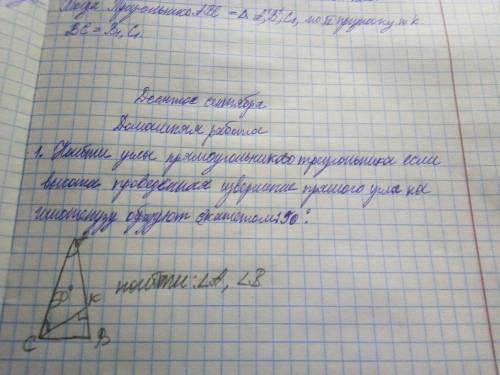 Тогда треугольник ABC = Δ A₁B₁C₁,
BC = B₁C₁
Десятое сентября
Домашняя работа
1. Найти углы прямоугольного треугольника если
высота проведённая из вершины прямого угла на
гипотенузу образуют с катетом 50°.
50°
K
найти: ∠A, ∠B
C
B